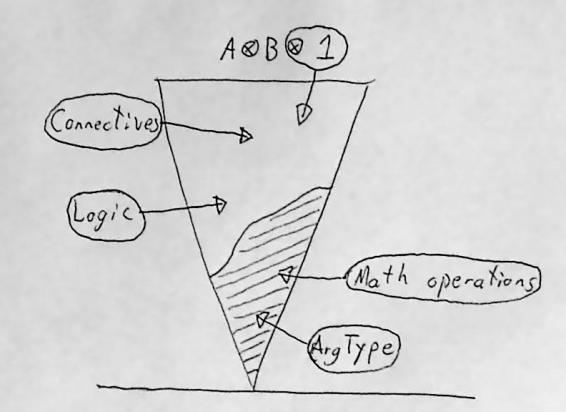 A⊗B⊗1
Connectives
Logic
Math operations
ArgType